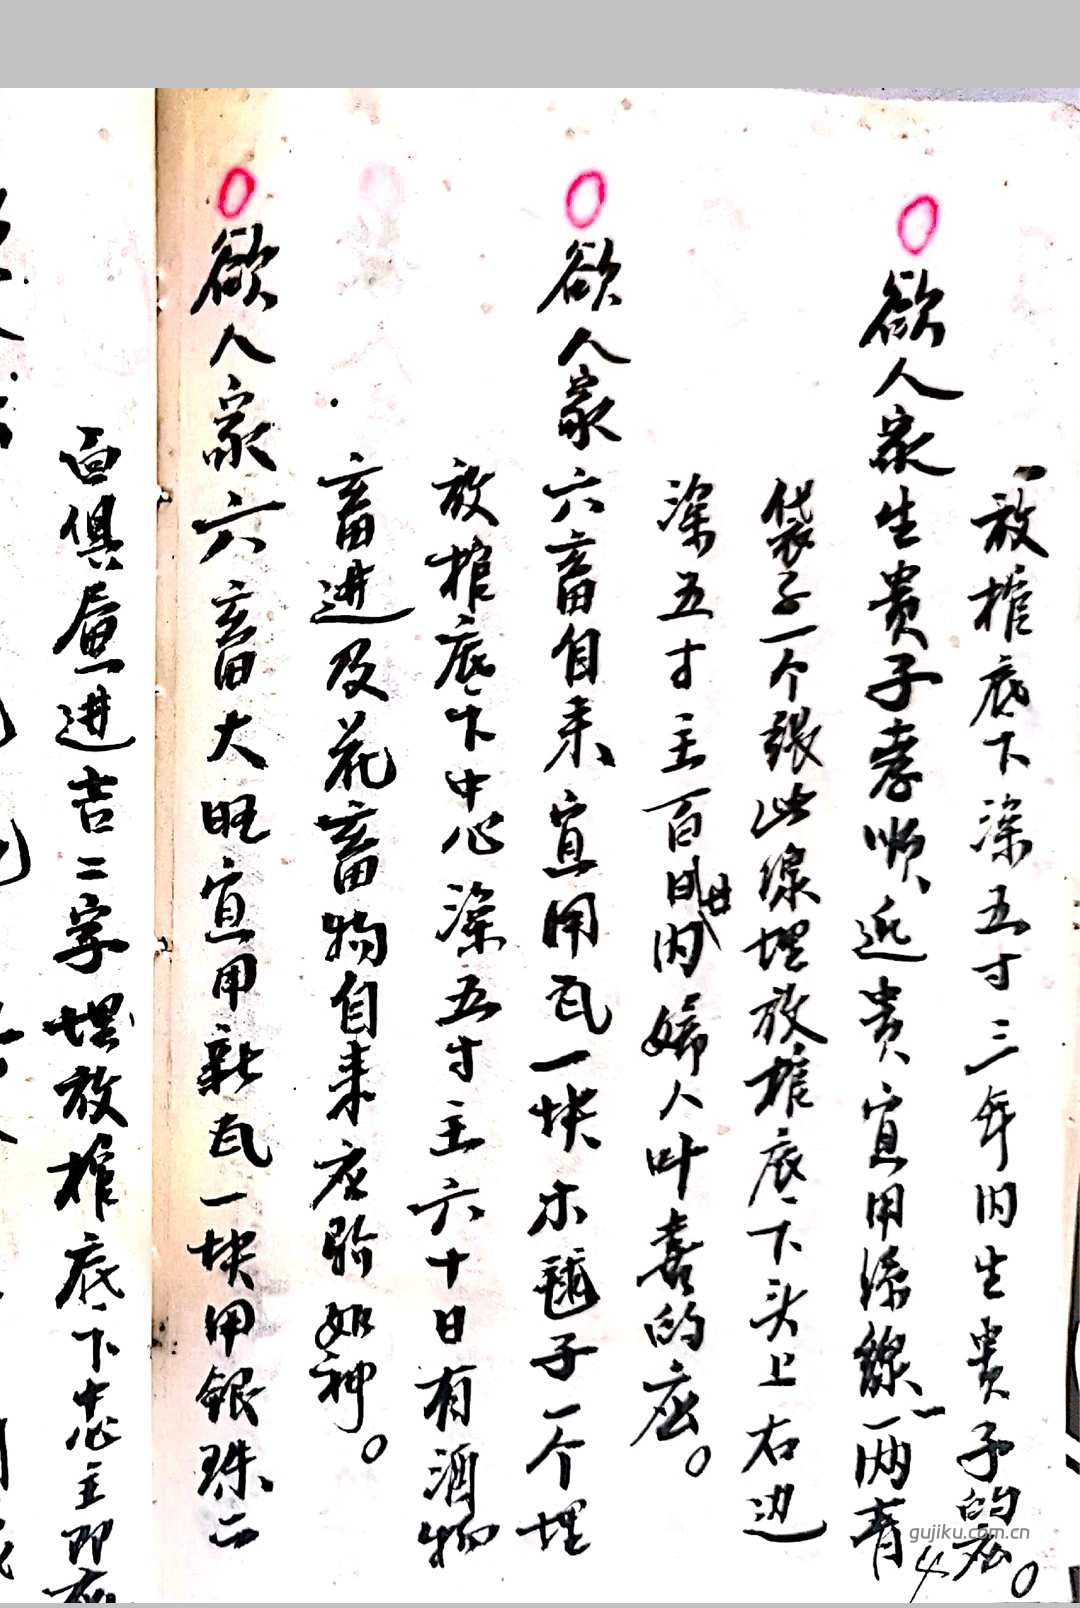 放棺底下深五寸三年内生贵子的应。
欲人家生贵子孝顺近贵宜用添線一两青
袋子一个装此線埋放棺底下头上右边
深五寸主百日内妇人叶喜的应。
廿
欲人家六畜自来宜用瓦一块木毬子一个埋
放棺底下中心深五寸主六十日有酒物
畜进及花畜物自来应验如神。
欲人家六畜大旺宜用新瓦一块甲銀珠二
面俱畫进吉二字埋放棺底下中心主即
4
gujiku.com.cn